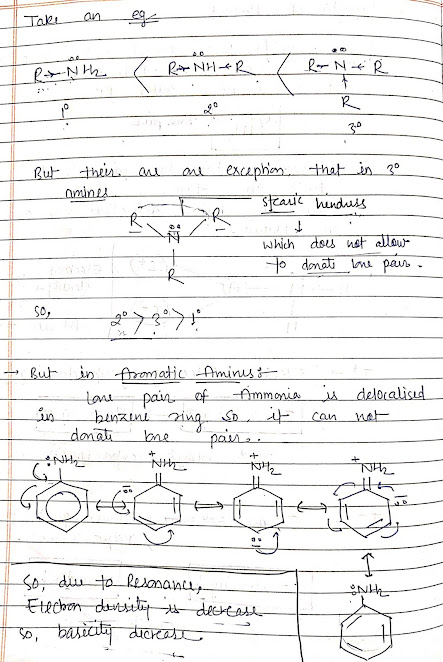 Take an eg
R→N̈H₂ < R→N̈H←R < R→N̈←R
↑
R
1° 2° 3°
But their are are exception that in 3°
amines
R R stearic hendress
N̈ ↓
which does not allow
R to donate lone pair.
So, 2° > 3° > 1°
→ But in Aromatic Amines:-
lone pair of Ammonia is delocalised
in benzene ring so, it can not
donate lone pair..
:NH₂ +NH₂ +NH₂ +NH₂
So, due to Resonance,
Electron density is decrease
:NH₂
So, basecity dicrease.